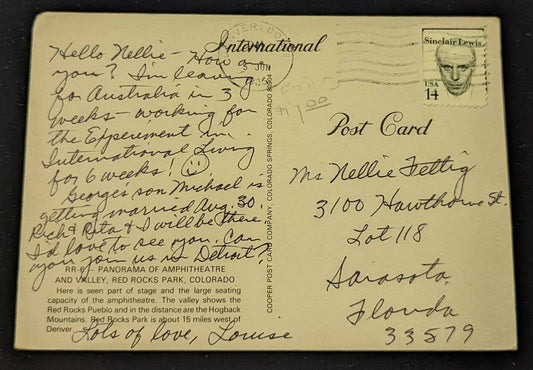 International
Hello Nellie - How are
you? I'm leaving
for Australia in 3
weeks - working for
the Experiment in
International Living
for 6 weeks!
George's son Michael is
getting married Aug. 30.
Rick & Rita & I will be there.
I'd love to see you. Can
you join us in Detroit?
RR-6 PANORAMA OF AMPHITHEATRE
AND VALLEY, RED ROCKS PARK, COLORADO
Here is seen part of stage and the large seating
capacity of the amphitheatre. The valley shows the
Red Rocks Pueblo and in the distance are the Hogback
Mountains. Red Rocks Park is about 15 miles west of
Denver.
Lots of love, Louise
COOPER POST CARD COMPANY, COLORADO SPRINGS, COLORADO
5 JUN
$1.00
Sinclair Lewis
USA
14
Post Card
Ms Nellie Fettig
3100 Hawthorne St.
Lot 118
Sarasota,
Florida
33579